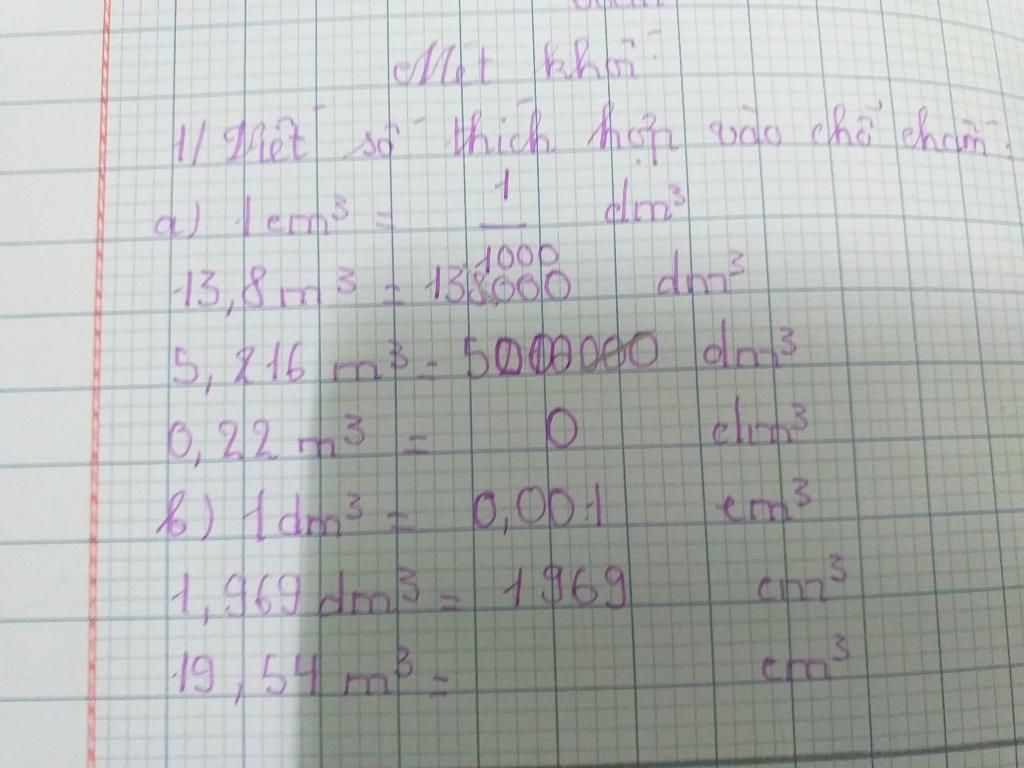 Mét khối
1) Viết số thích hợp vào chỗ chấm:
a) 1cm³ = 1/1000 dm³
13,8m³ = 138000 dm³
5,216 m³ = dm³
0,22 m³ = 0 dm³
b) 1dm³ = 0,001 cm³
1,969dm³ = 1969 cm³
19,54 m³ = cm³